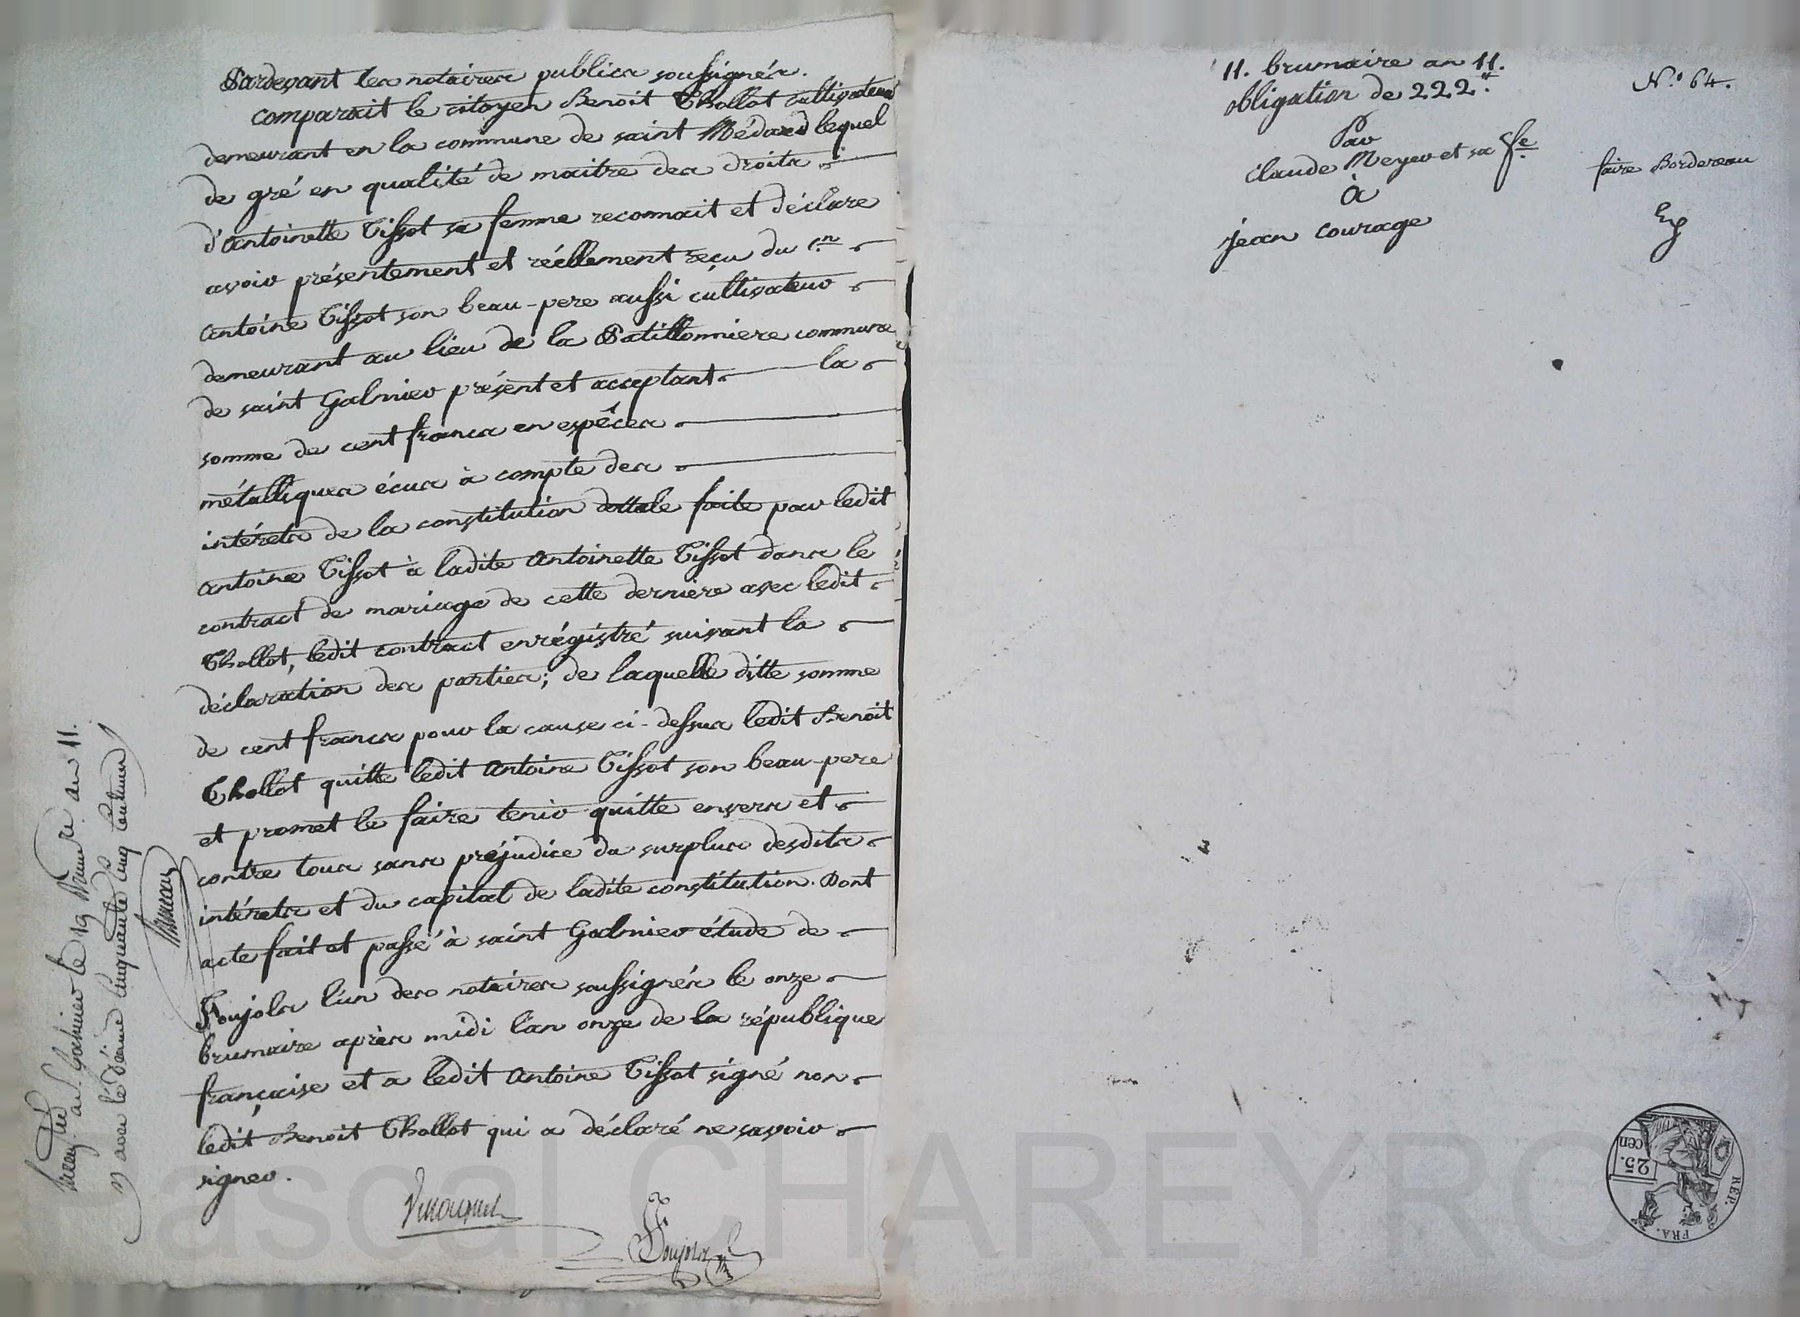 Pardevant les notaires publics soussignés.
comparait le citoyen Benoit Thollot cultivateur
demeurant en la commune de saint Médard lequel
de gré en qualité de maitre des droits
d'antoinette Tissot sa femme reconnait et déclare
avoir présentement et réellement reçu du c.en
antoine Tissot son beau-pere aussi cultivateur
demeurant au lieu de la Batillonniere commune
de saint Galmier présent et acceptant la
somme de cent francs en espêces
métalliques écus à compte des
intérets de la constitution dottale faite par ledit
antoine Tissot à ladite antoinette Tissot dans le
contract de mariage de cette derniere avec ledit
Thollot, ledit contract enrégistré suivant la
déclaration des parties; de laquelle ditte somme
de cent francs pour la cause ci-dessus ledit Benoit
Thollot quitte ledit antoine Tissot son beau-pere
et promet le faire tenir quitte envers et
contre tous sans préjudice du surplus desdits
intérets et du capital de ladite constitution. Dont
acte fait et passé à saint Galmier étude de
Poujols l'un des notaires soussignés le onze
brumaire après midi l'an onze de la république
française et a ledit antoine Tissot signé non
ledit Benoit Thollot qui a déclaré ne savoir
signer.
Poujols
au S. Galmier le 19 Brum.re an 11.
avec le déxime cinquante cinq centimes
11. brumaire an 11.
obligation de 222.tt
Par
Claude Meyer et sa fe.
à
jean courage
N.o 64.
faire Bordereau
Eg
25.
cen
REP. FRA.
Pascal CHAREYRON